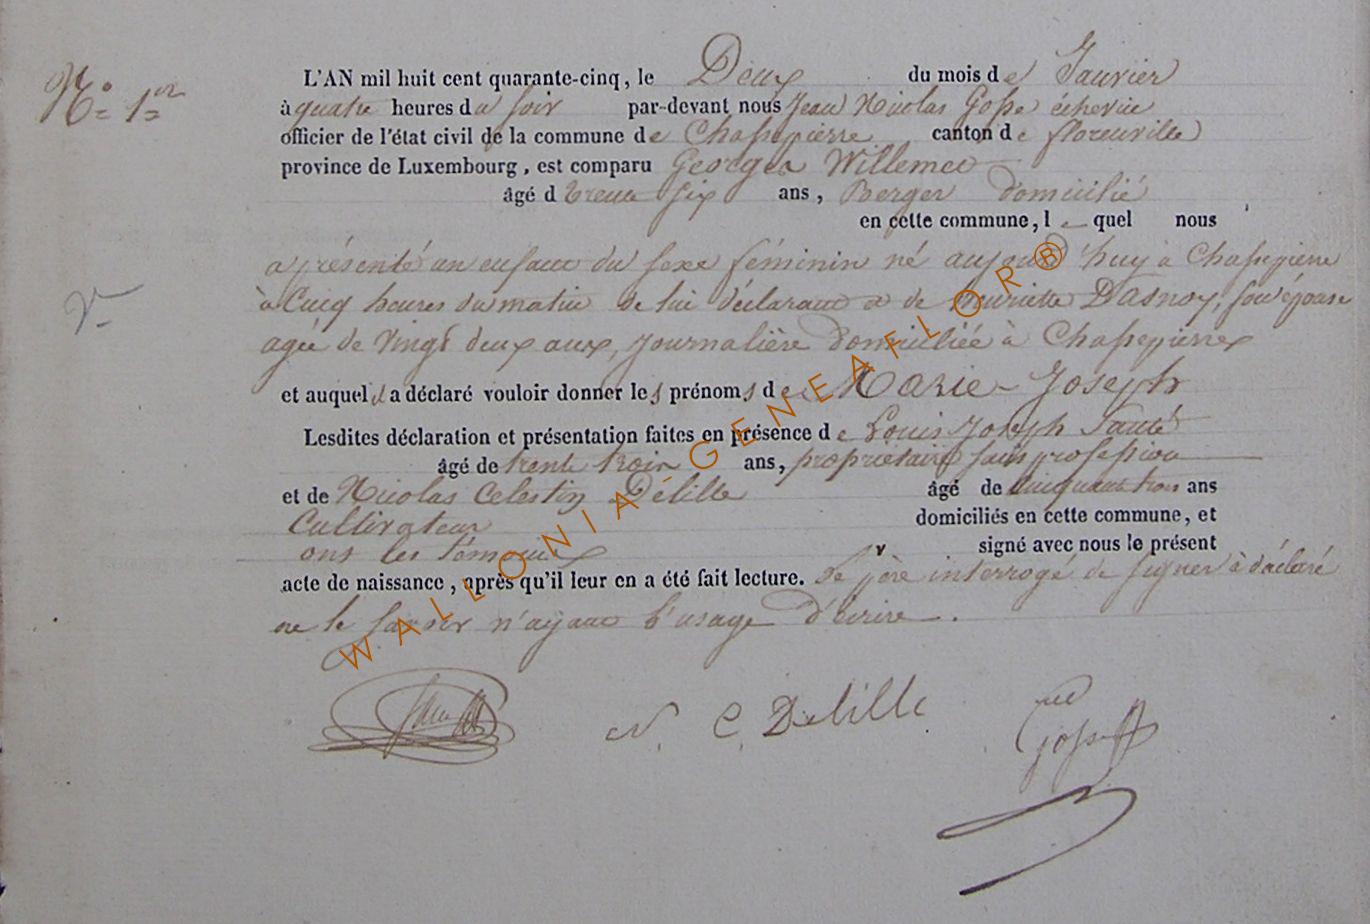 N° 1er
L'AN mil huit cent quarante-cinq, le Deux du mois de Janvier
à quatre heures du soir par-devant nous Jean Nicolas Gosse échevin
officier de l'état civil de la commune de Chassepierre canton de florenville
province de Luxembourg, est comparu Georges Willemet
âgé d trente six ans, Berger domicilié
en cette commune, le quel nous
a présenté un enfant du sexe féminin né aujourd'huy à Chassepierre
à Cinq heures du matin de lui déclarant et de henriette Dasnoy, son épouse
agée de Vingt deux ans, journalière domiciliée à Chassepierre
et auquel il a déclaré vouloir donner les prénoms de Marie-Joseph
Lesdites déclaration et présentation faites en présence de Louis Joseph
âgé de trente trois ans, propriétaire sans profession
et de Nicolas Celestin Delille âgé de cinquante trois ans
Cultivateur domiciliés en cette commune, et
ont les témoins signé avec nous le présent
acte de naissance, après qu'il leur en a été fait lecture. Le père interrogé de signer à déclaré
ne le savoir n'ayant l'usage d'écrire.
N. C. Delille
Gosse
WALLONIA GENEAFLOR®